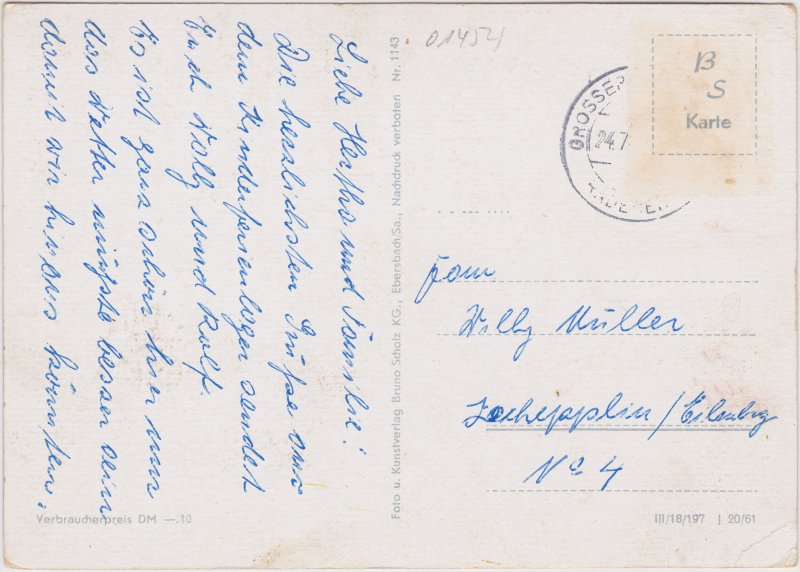 Liebe Hertha und Familie!
Die herzlichsten Grüße aus
dem Kinderferienlager sendet
Euch Wolfg und Rolf.
Es ist ganz schön hier nur
das Wetter müßte besser sein
damit wir hinaus könnten.
Verbraucherpreis DM —.10
Foto u. Kunstverlag Bruno Scholz KG., Ebersbach/Sa., Nachdruck verboten Nr. 1143
01454
GROSSER
24.7
B
S
Karte
Fam
Willy Müller
Zschepplin/Eilenburg
No 4
III/18/197 J 20/61